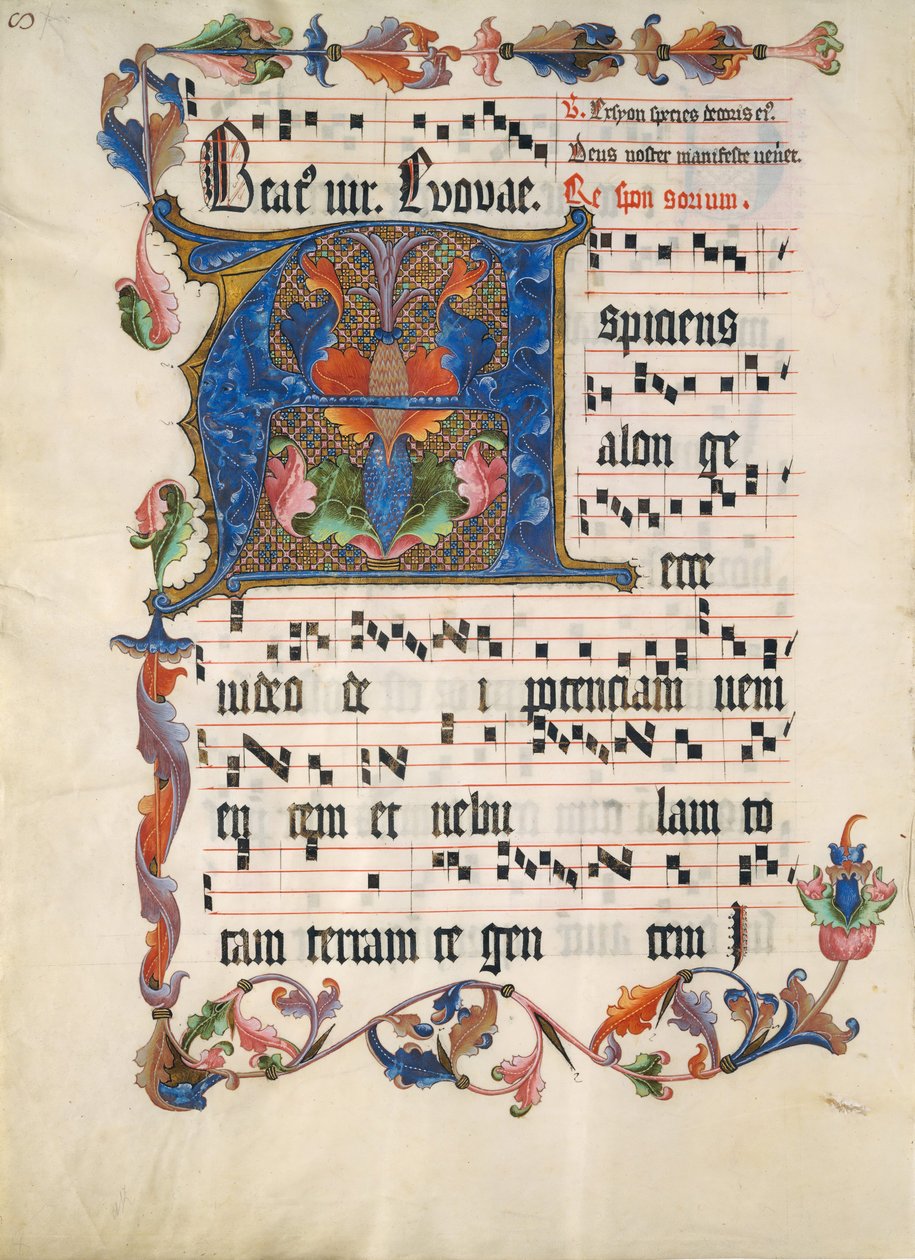 Beatꝰ uir. Euouae.
℣. Ex syon species decoris eiꝰ.
Deus noster manifeste ueniet.
Re spon sorium.
Aspiciens
alon ge
ecce
uideo de i potenciam ueni
en tem et nebu lam to
tam terram te gen tem I